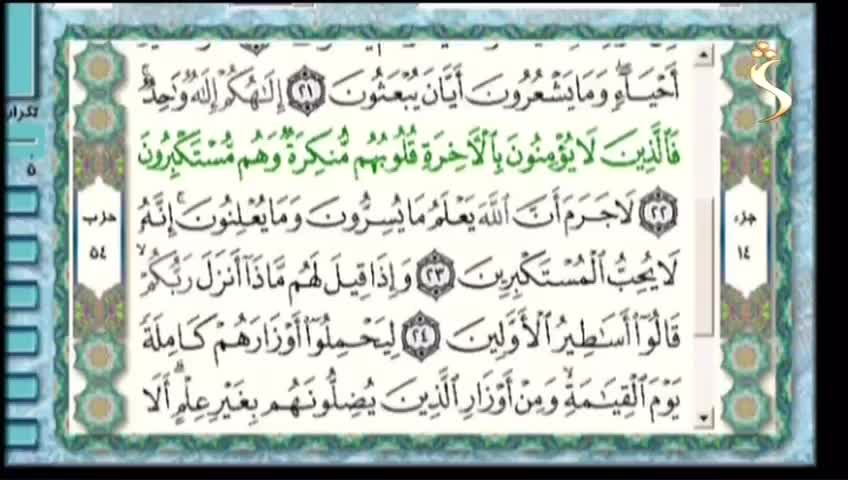 أَحْيَاءٍ ۖ وَمَا يَشْعُرُونَ أَيَّانَ يُبْعَثُونَ ﴿٢١﴾ إِلَٰهُكُمْ إِلَٰهٌ وَاحِدٌ ۚ
فَالَّذِينَ لَا يُؤْمِنُونَ بِالْآخِرَةِ قُلُوبُهُم مُّنكِرَةٌ وَهُم مُّسْتَكْبِرُونَ
﴿٢٢﴾ لَا جَرَمَ أَنَّ اللَّهَ يَعْلَمُ مَا يُسِرُّونَ وَمَا يُعْلِنُونَ ۚ إِنَّهُ
لَا يُحِبُّ الْمُسْتَكْبِرِينَ ﴿٢٣﴾ وَإِذَا قِيلَ لَهُم مَّاذَا أَنزَلَ رَبُّكُمْ ۙ
قَالُوٓا أَسَاطِيرُ الْأَوَّلِينَ ﴿٢٤﴾ لِيَحْمِلُوٓا أَوْزَارَهُمْ كَامِلَةً
يَوْمَ الْقِيَامَةِ ۙ وَمِنْ أَوْزَارِ الَّذِينَ يُضِلُّونَهُم بِغَيْرِ عِلْمٍ ۗ أَلَا
جزء
١٤
حزب
٥٤
تكرار
٥